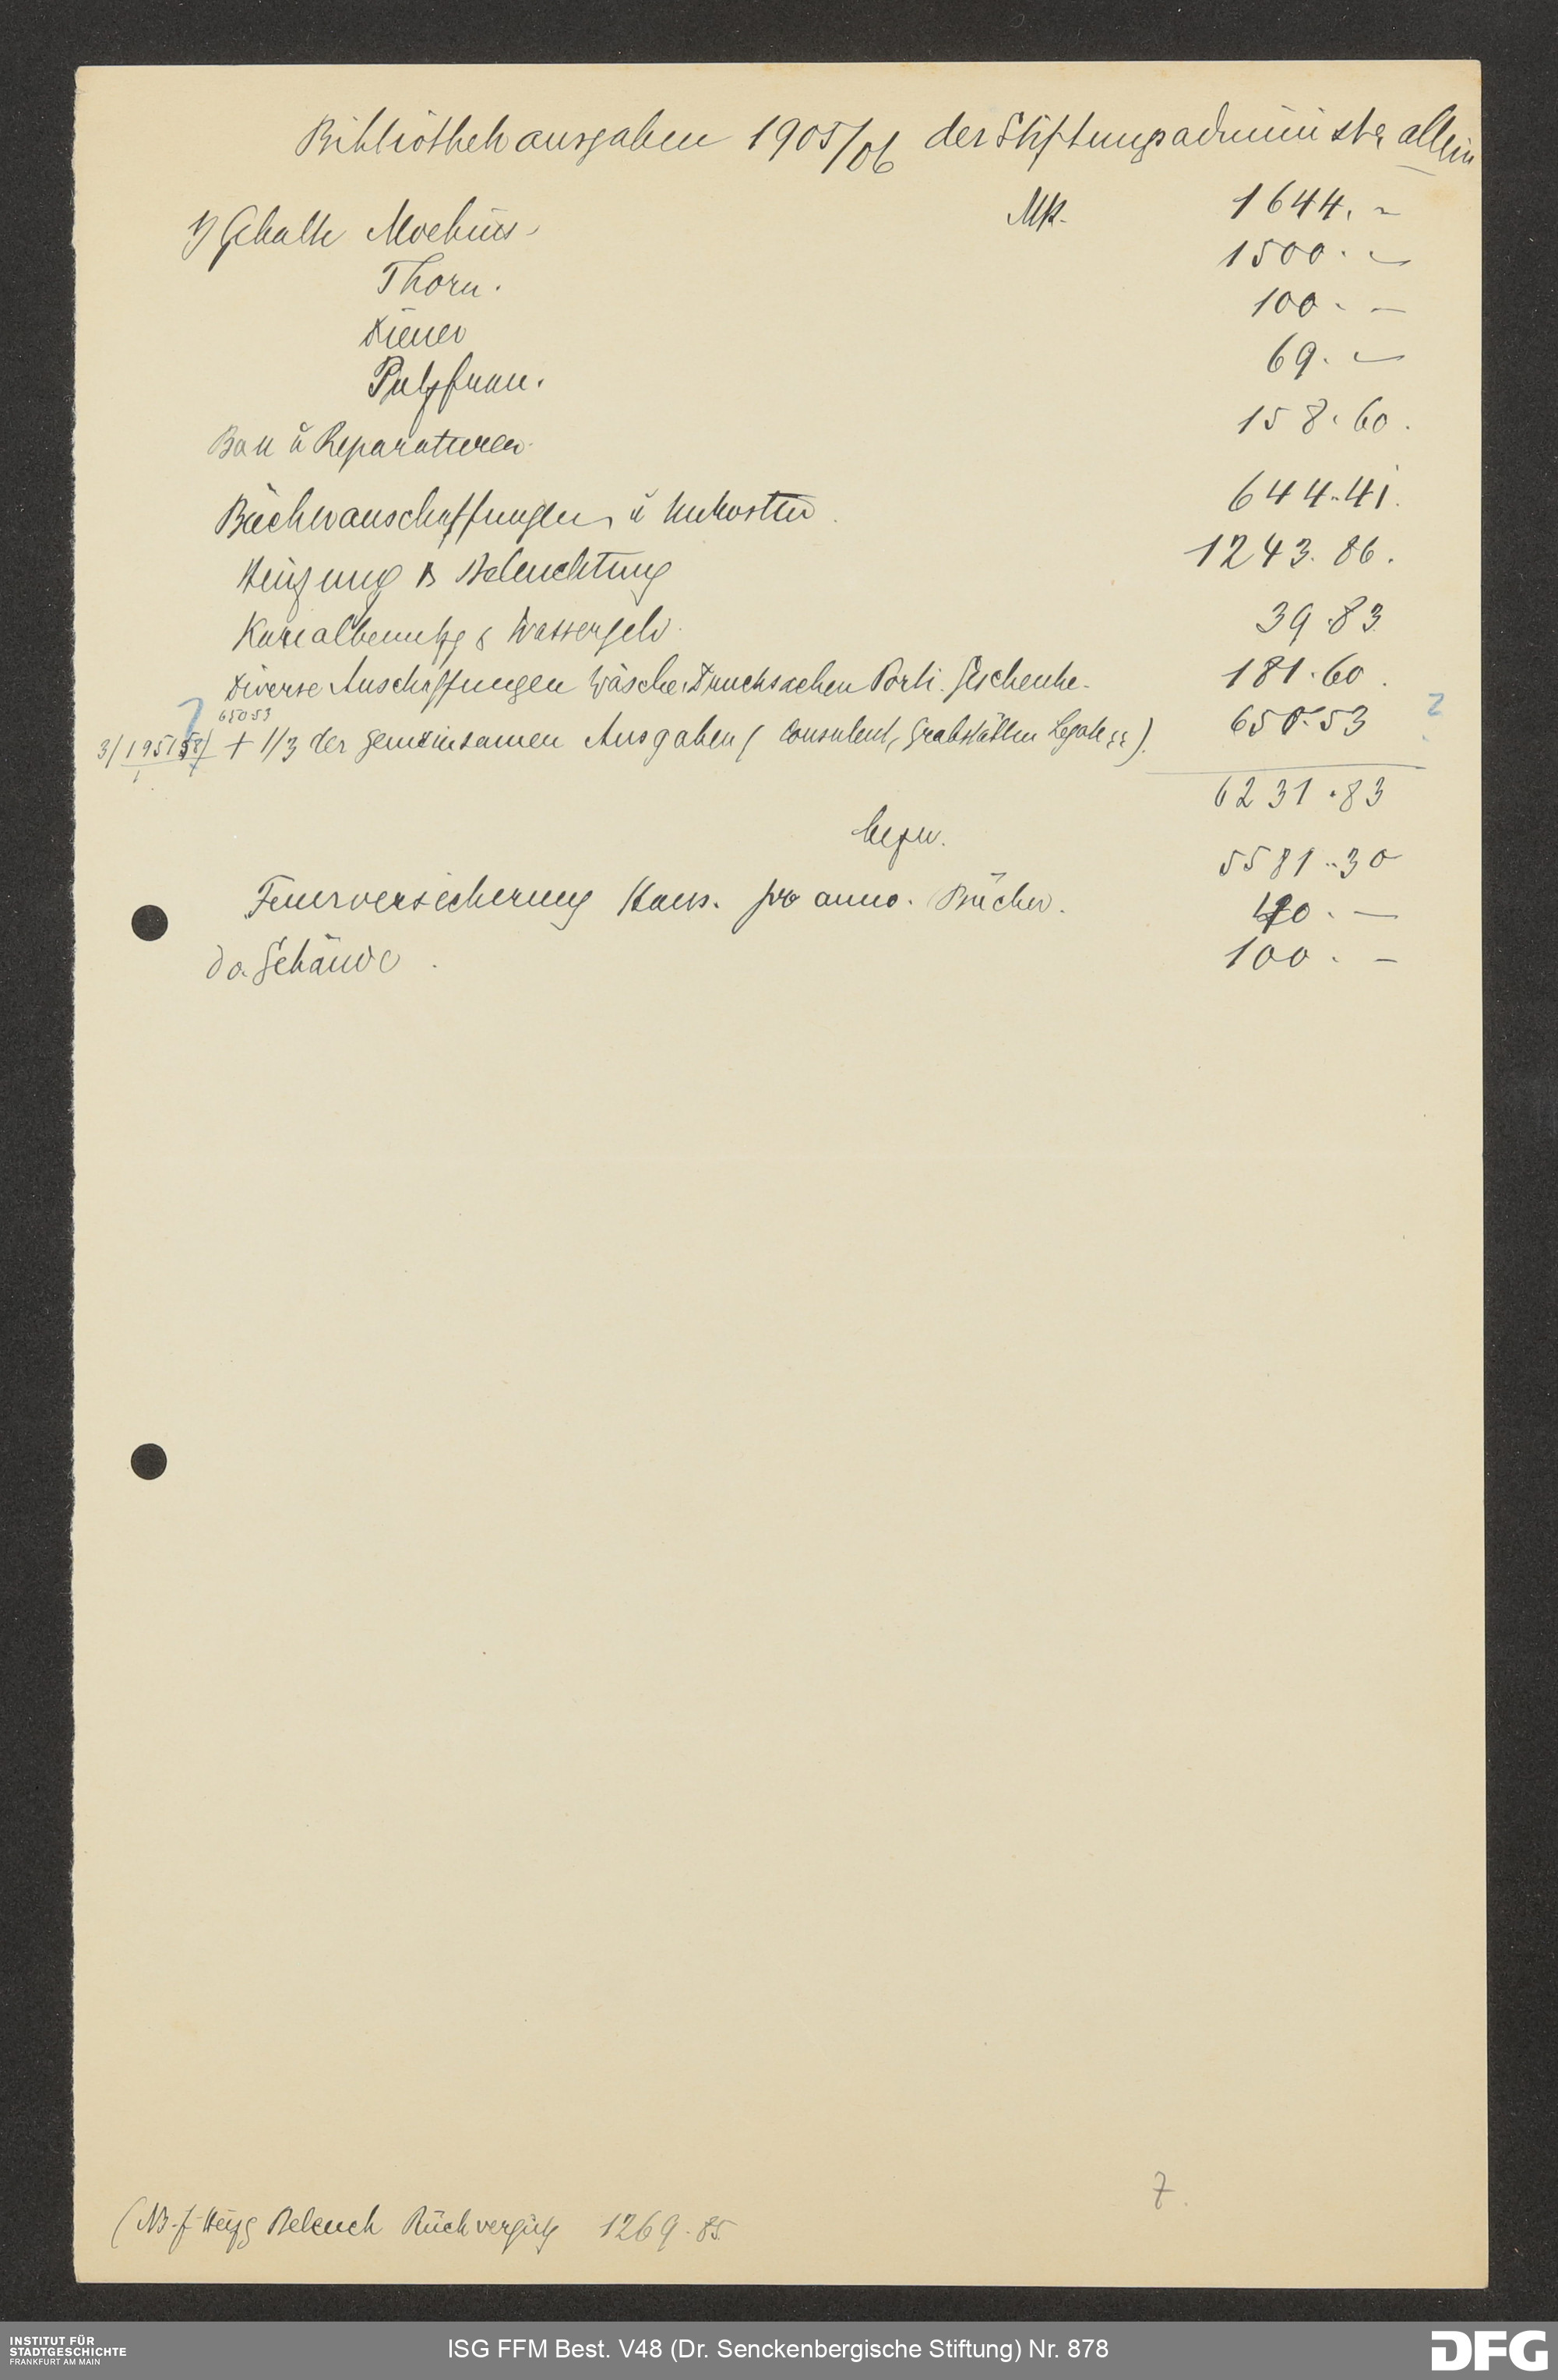 Bibliothekausgaben 1905/06 der Stiftungsadministr allein
1) Gehalte Moebius. Mk. 1644. –
Thorn. 1500. –
Diener 100. –
Putzfrau. 69. –
Bau ŭ Reparaturen 158.60.
Bücheranschaffungen ŭ Unkosten. 644.41.
Heizung & Beleuchtung 1243.86.
Kanalbenutzg & Wassergeld. 39.83
Diverse Anschaffungen Wäsche Drucksachen Porti. Geschenke. 181.60.
? 65053 ?
3/195158/ + 1/3 der gemeinsamen Ausgaben (Consulent, Grabstätten Legate). 650.53
6231.83
bezw. 5581.30
Feuerversicherung Haus. pro anno. Bücher.
do. Gebäude. 100. –
7.
(NB. f. Heizg Beleuch Rückvergütg 1269.85
INSTITUT FÜR
STADTGESCHICHTE
FRANKFURT AM MAIN
ISG FFM Best. V48 (Dr. Senckenbergische Stiftung) Nr. 878
DFG